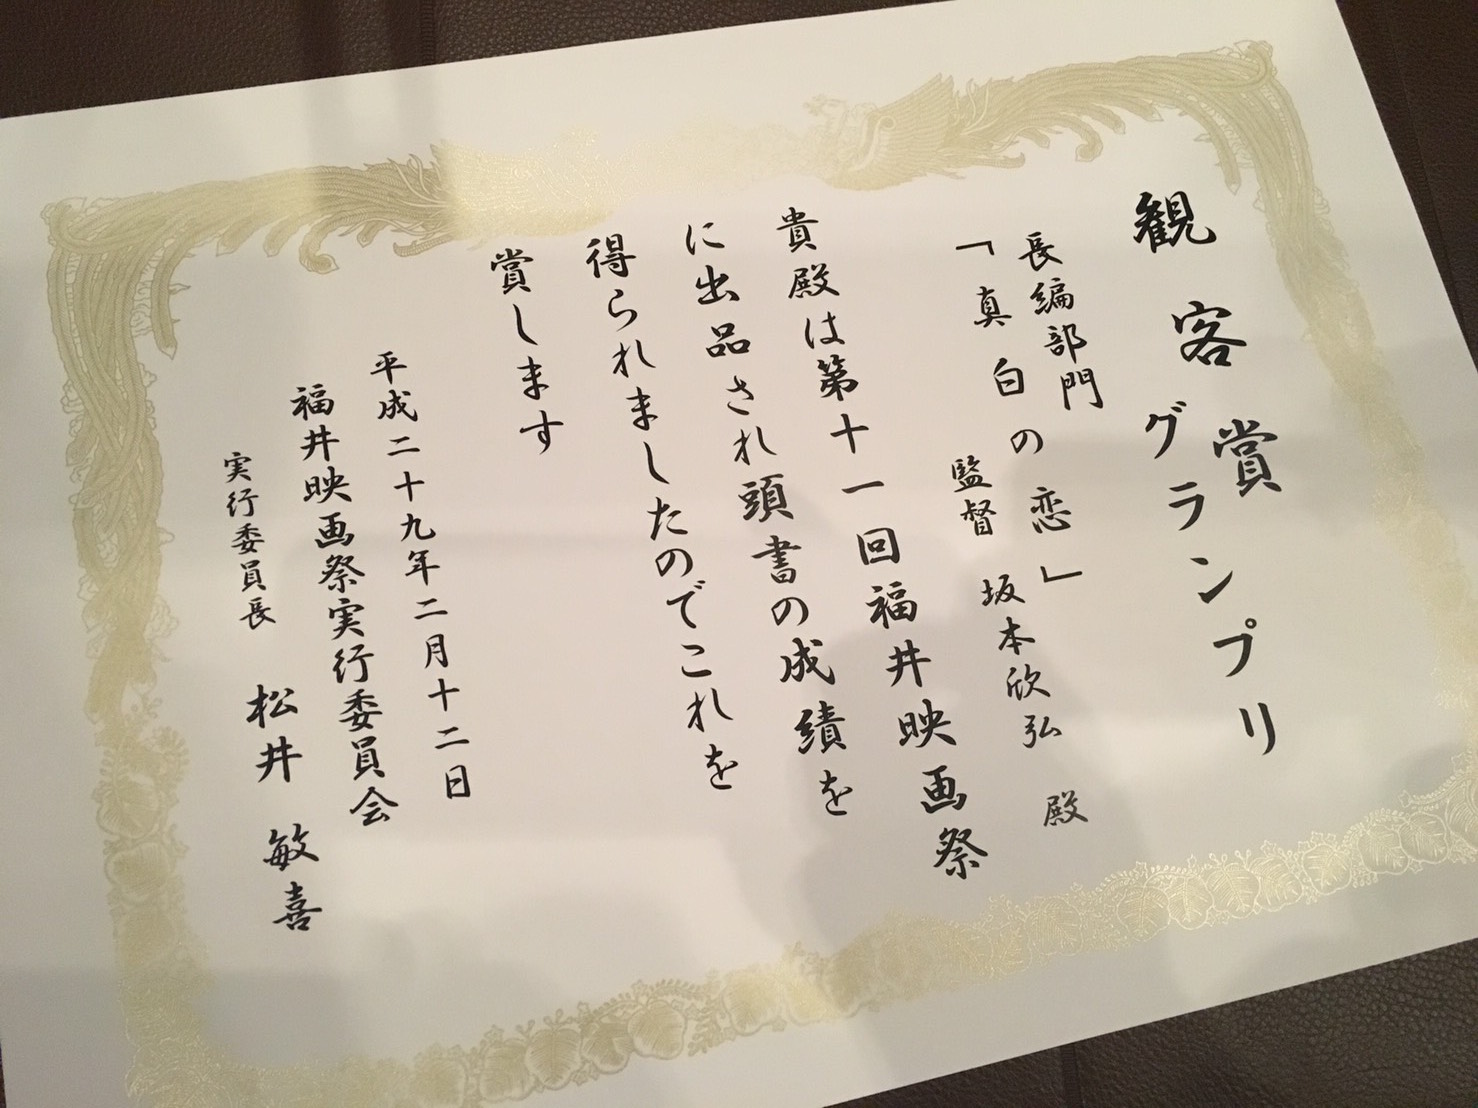 観客賞グランプリ
長編部門
「真白の恋」
監督 坂本欣弘 殿
貴殿は第十一回福井映画祭
に出品され頭書の成績を
得られましたのでこれを
賞します
平成二十九年二月十二日
福井映画祭実行委員会
実行委員長 松井 敏喜